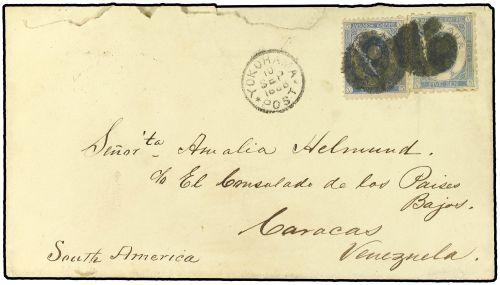 YOKOHAMA
POST
FIVE SEN
Señorita Amalia Helmund.
c/o El Consulado de los Paises
Bajos.
Caracas
Venezuela.
South America